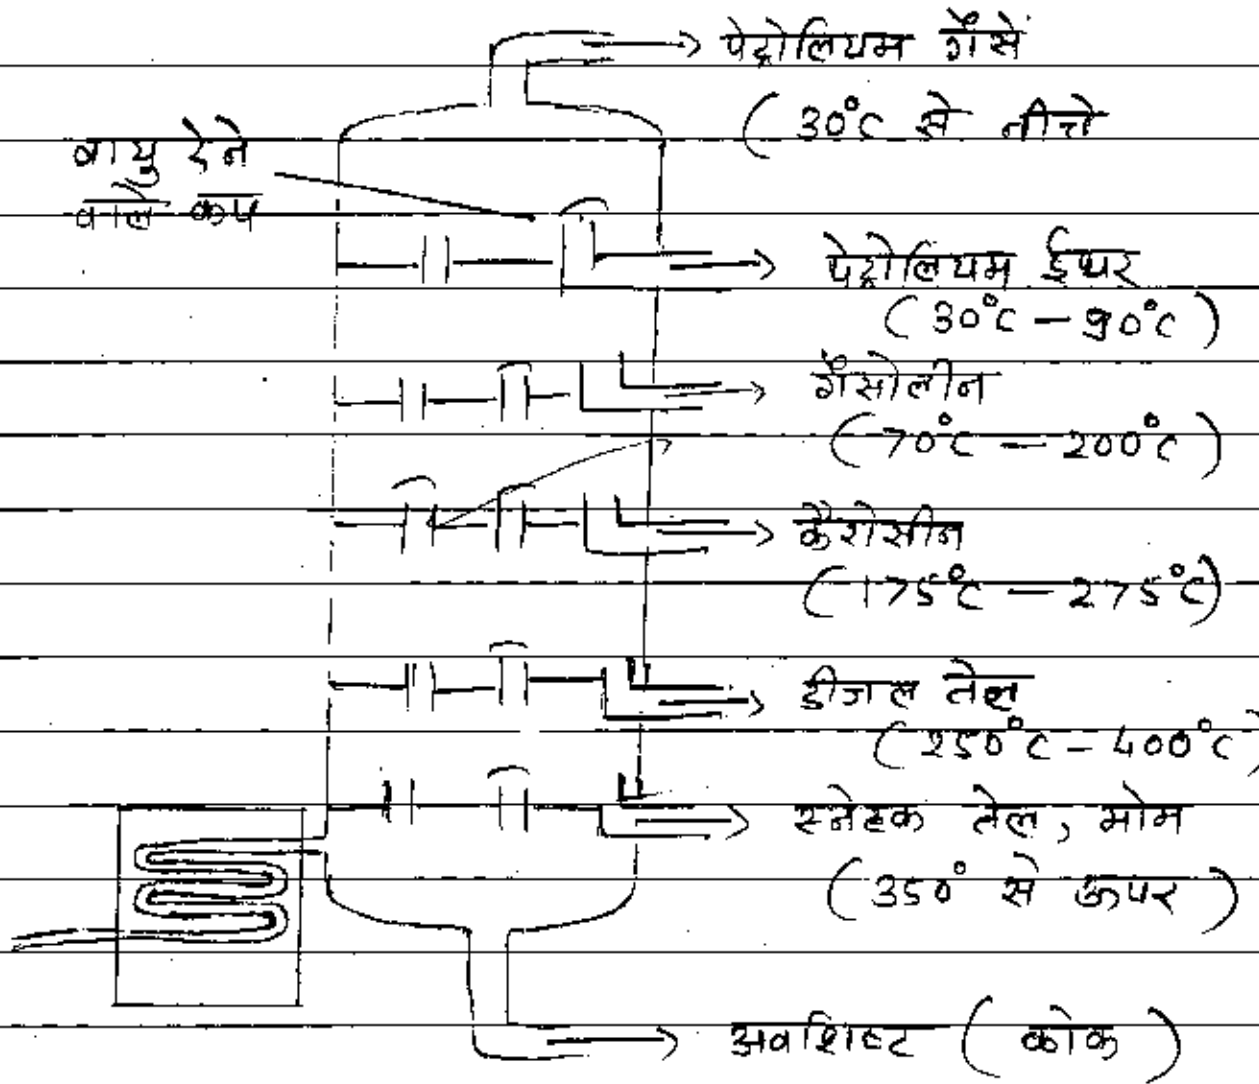 पेट्रोलियम गैसें
(30°C से नीचे
वायु देने
वाले कप
पेट्रोलियम ईथर
(30°C – 90°C)
गैसोलीन
(70°C – 200°C)
कैरोसीन
(175°C – 275°C)
डीजल तेल
(250°C – 400°C)
स्नेहक तेल, मोम
(350° से ऊपर)
अवशिष्ट (कोक)